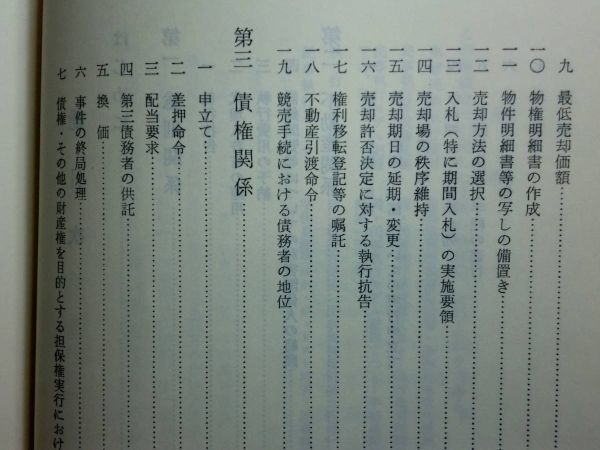 九 最低売却価額
一〇 物権明細書の作成
一一 物件明細書等の写しの備置き
一二 売却方法の選択
一三 入札(特に期間入札)の実施要領
一四 売却場の秩序維持
一五 売却期日の延期・変更
一六 売却許否決定に対する執行抗告
一七 権利移転登記等の嘱託
一八 不動産引渡命令
一九 競売手続における債務者の地位
第三 債権関係
一 申立て
二 差押命令
三 配当要求
四 第三債務者の供託
五 換価
六 事件の終局処理
七 債権・その他の財産権を目的とする担保権実行におけ